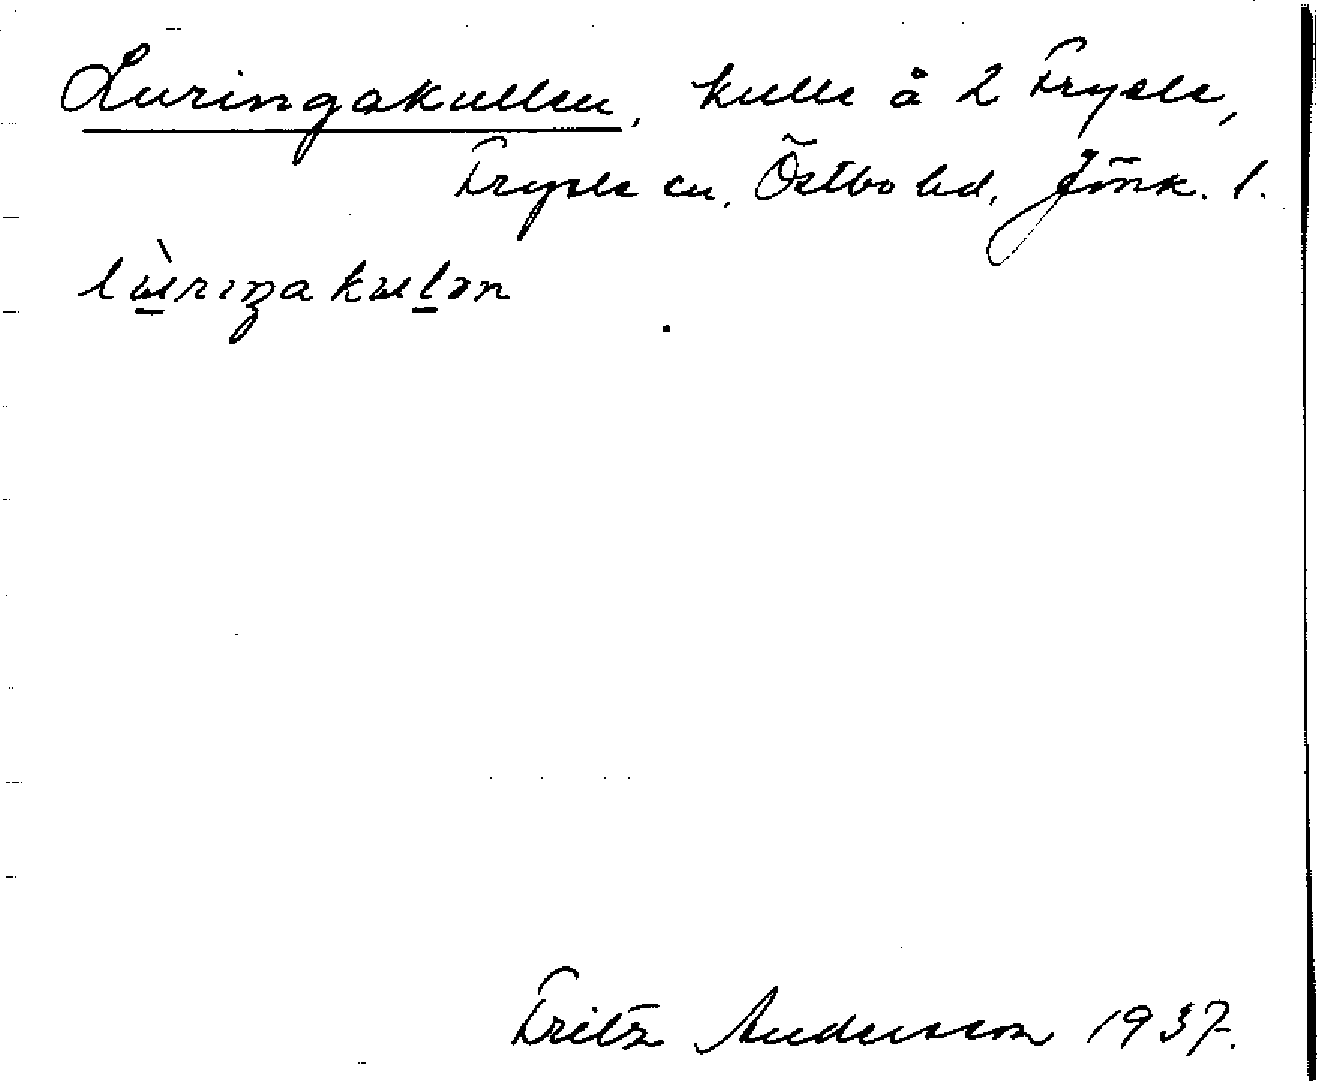 Luringakullen, kulle å 2 Fryele,
Fryele sn, Östbo hd, Jönk. l.
lùriŋakulən
Fritz Andersson 1937.